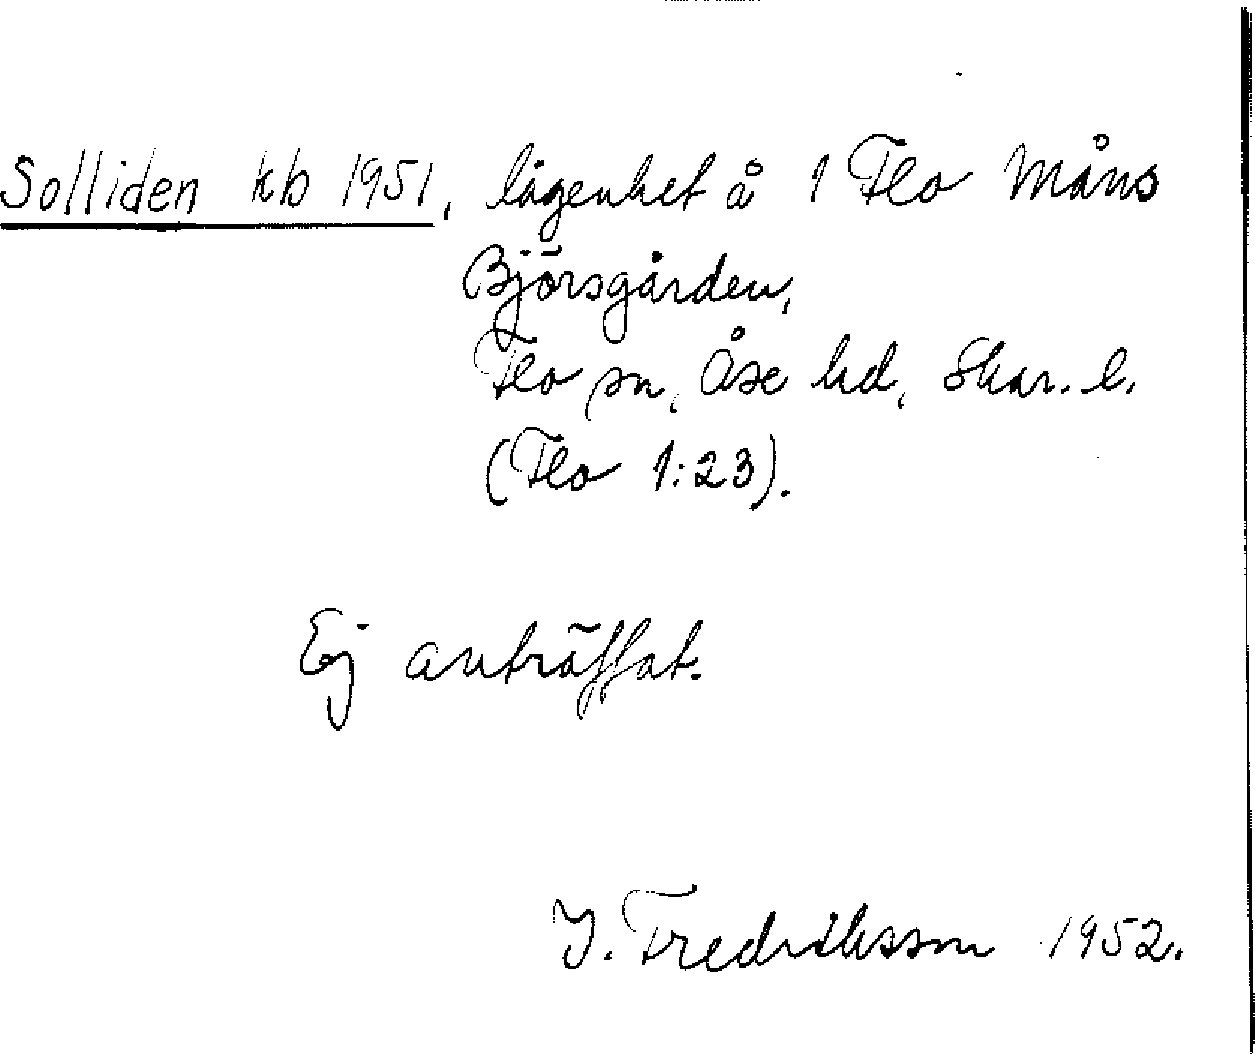 Solliden kb 1951, lägenhet å 1 Flo Måns
Björsgården,
Flo sn, Åse hd, Skar. l.
(Flo 1:23).
Ej anträffat.
I. Fredriksson 1952.